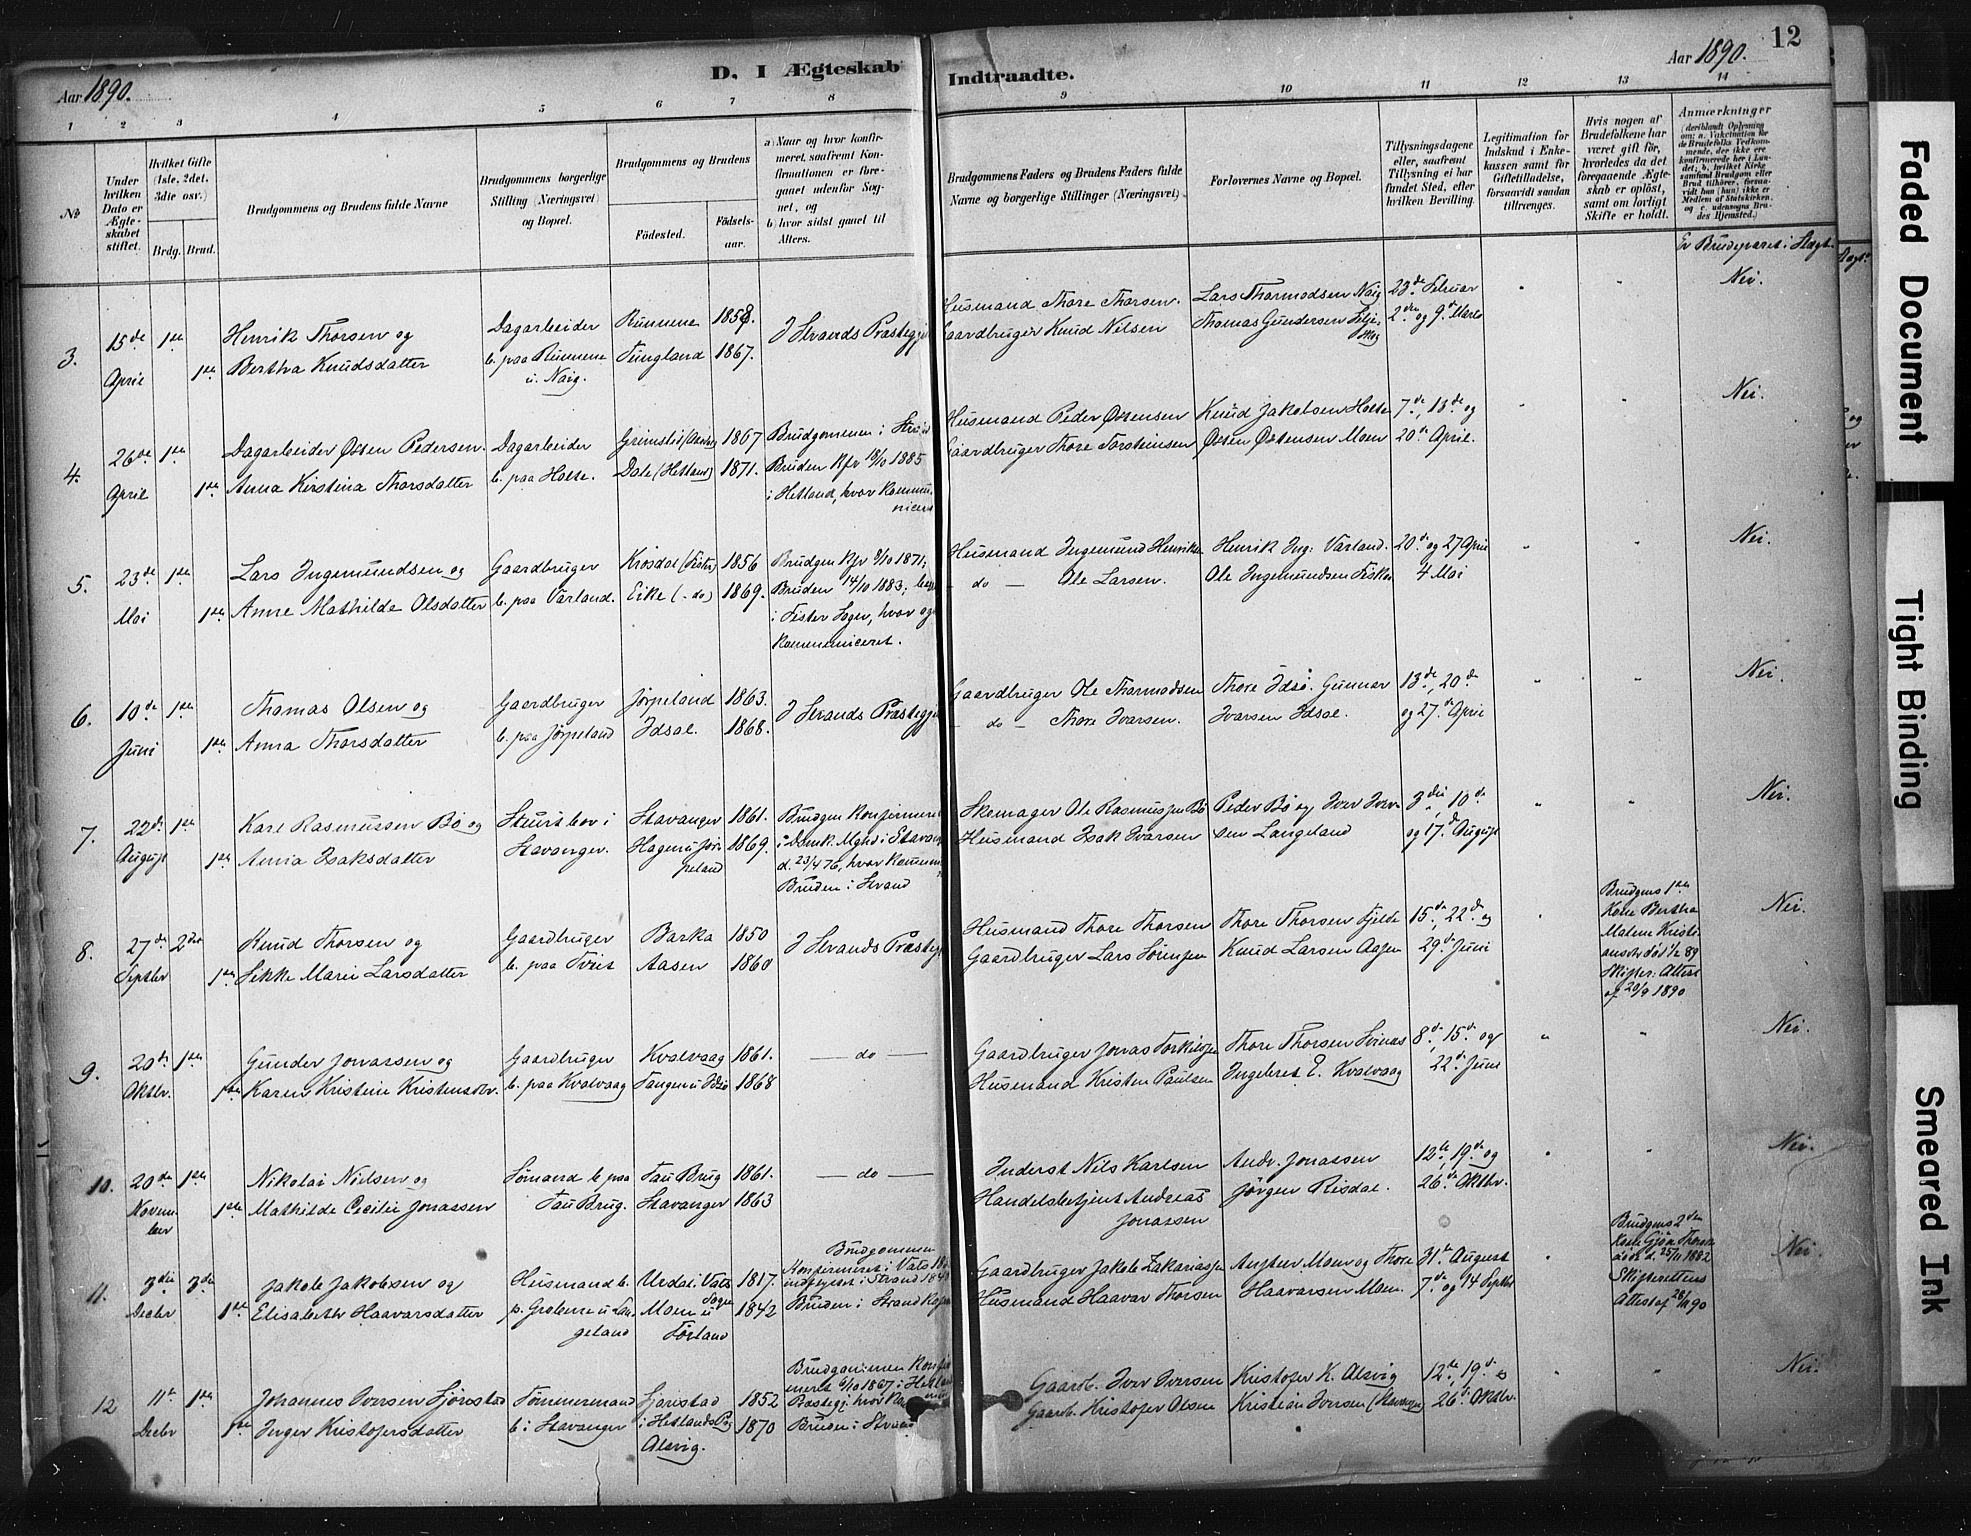 Aar 1890.
D. I Ægteskab
Indtraadte.
Aar 1890.
12
1 2 3 4 5 6 7 8 9 10 11 12 13 14
No
Under hvilken Dato er Ægteskabet stiftet.
Hvilket Gifte (1ste, 2det, 3die osv.)
Brdg. Brud.
Brudgommens og Brudens fulde Navne
Brudgommens borgerlige Stilling (Næringsvei) og Bopæl.
Brudgommens og Brudens
Födested.
Födselsaar.
a) Naar og hvor konfirmeret, saafremt Konfirmationen er foregaaet udenfor Sognet, og
b) hvor sidst gaaet til Alters.
Brudgommens Faders og Brudens Faders fulde Navne og borgerlige Stillinger (Næringsvei)
Forlovernes Navne og Bopæl.
Tillysningsdagene eller, saafremt Tillysning ei har fundet Sted, efter hvilken Bevilling.
Legitimation for Indskud i Enkekassen samt for Giftetilladelse, forsaavidt saadan tiltrænges.
Hvis nogen af Brudefolkene har været gift før, hvorledes da det foregaaende Ægteskab er oplöst, samt om lovligt Skifte er holdt.
Anmærkninger
Er Brudeparret i Slægt
3.
15de April
1ste
1ste
Henrik Thorsen og
Bertha Knudsdatter
Dagarbeider
b. paa Runnene
u. Naig.
Runnene 1858.
Tungland 1867.
I Strands Præstegj
Husmand Thore Thorsen.
Gaardbruger Knud Nilsen
Lars Thormodsen Naig
Thomas Gundersen
23de Februar
2den og 9de Marts
Nei.
4.
26de April
1ste
1ste
Dagarbeider Østen Pedersen.
Anna Kirstina Thorsdatter
Dagarbeider
b. paa Holte.
1867
Dale (Hetland) 1871.
Brudgommen i Strand
Bruden Kfr 18/10 1885
i Hetland, hvor kommuniceret
Husmand Peder Østensen
Gaardbruger Thore Torsteinsen
Knud Jakobsen Holte
Østen Østensen Moen
7de, 13de og
20de April.
Nei.
5.
23de Mai
1ste
1ste
Lars Ingemundsen og
Anne Mathilde Olsdatter
Gaardbruger
b. paa Varland.
Krosdal (Fister) 1856
Eike (- do) 1869.
Brudgen Kfr 8/10 1871;
Bruden 14/10 1883; begge
i Fister Sogn, hvor og
kommuniceret.
Husmand Ingemund Henriksen
- do - Ole Larsen.
Henrik Ing: Varland.
Ole Ingemundsen Fisken
20de og 27 April
4 Mai
Nei.
6.
10de Juni
1ste
1ste
Thomas Olsen og
Anna Thorsdatter
Gaardbruger
b. paa Jørpeland
Jørpeland 1863.
Idsal. 1868.
I Strands Præstegj
Gaardbruger Ole Thormodsen
- do - Thore Ivarsen.
Thore Idsø. Gunnar
Ivarsen Idsal.
13de, 20de
og 27de April
Nei.
7.
22de August
1ste
1ste
Karl Rasmussen Bö og
Anna Isaksdatter
Steurs bor i
Stavanger.
Stavanger 1861.
Hagen u. Jørpeland 1869.
Brudgen konfirmeret
i Domk. Mghd i Stavanger
d. 23/4 76, hvor Kommun
Bruden i Strand
Skomager Ole Rasmussen Bö
Husmand Isak Ivarsen
Peder Bö og Iver Iversen Langeland
3die, 10de
og 17de August
Nei.
8.
27de Septbr
2det
1ste
Knud Thorsen og
Sikke Marie Larsdatter
Gaardbruger
b. paa Tveit
Barka 1850
Aasen 1860
I Strands Præstegj
Husmand Thore Thorsen
Gaardbruger Lars Sörensen
Thore Thorsen Fjelde
Knud Larsen Aasen
15de, 22de og
29de Juni
Brudgens 1ste
Kone Bertha
Malene Kristiansdtr död 1/2 89
Skifter: Attest
af 20/9 1890
Nei.
9.
20de Oktbr.
1ste
1ste
Gunder Jonassen og
Karen Kristine Kristensdtr.
Gaardbruger
b. paa Kvalvaag
Kvalvaag 1861.
Tangen u Idsø 1868
— do —
Gaardbruger Jonas Torkilsen
Husmand Kristen Paulsen
Thore Thorsen Svinas
Ingebret E. Kvalvaag
8de, 15de og
22de Juni
Nei.
10.
20de November
1ste
1ste
Nikolai Nielsen og
Mathilde Cecilie Jonassen
Sömand b. paa
Tau Brug.
Tau Brug 1861.
Stavanger 1863
— do —
Inderst Nils Karlsen
Handelsbetjent Andreas
Jonassen
Andr. Jonassen
Jörgen Risdal.
12te, 19de og
26de Oktbr.
Nei.
11.
3die Decbr
3die
1ste
Jakob Jakobsen og
Elisabeth Haavarsdatter
Husmand b.
p. Grobene u Langeland
Urdal i Vats Sogn 1817.
Moen u Törland 1842
Brudgommen
Konfirmeret i Vats
indflyttet i Strand
Bruden i Strand
Gaardbruger Jakob Zakariassen
Husmand Haavar Thorsen
Austen Moen og Thore
Haavarsen Moen
31te August
7de og 14 Septbr
Brudgens 2den
Kone Gjön Thorsd.
död d. 25/11 1882
Skifterettens
Attest af 28/11 90
Nei.
12
11te Decbr
1ste
1ste
Johannes Iversen Fjönstad
Inger Kristofersdatter
Tömmermand
b. i Stavanger
Fjönstad 1852
i Hetlands Pg
Alsvig. 1870
Brudgommen Konfirmeret 6/10 1867 i Hetland
Præstegj. hvor
Bruden i Strand
Gaardb. Iver Iversen
Gaardb. Kristofer Olsen
Kristofer K. Alsvig
Kristian Iversen (Stavanger)
12te, 19de
26de Oktbr.
Nei.
Faded Document
Tight Binding
Smeared Ink